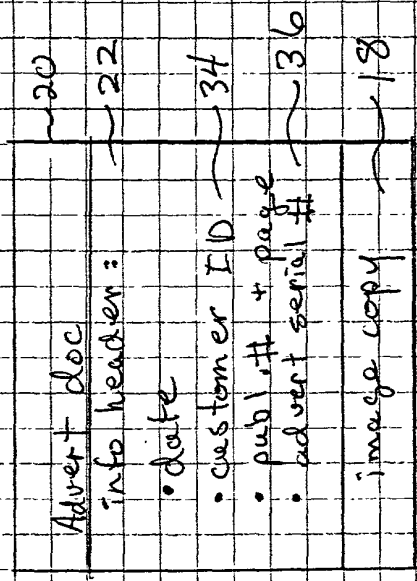 Advert doc ~20
info header: ~22
• date
• customer ID ~34
• publ. # + page
• advert serial # ~36
image copy ~18